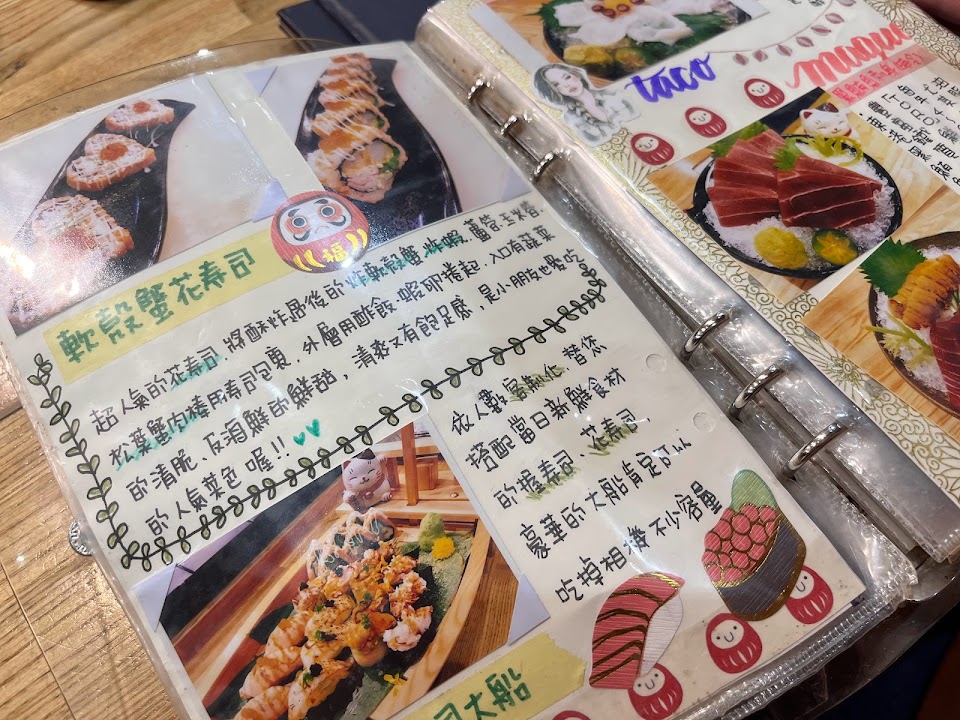 軟殼蟹花壽司
福
超人氣的花壽司,將酥炸過後的炸軟殼蟹、炸蝦、蘆筍、玉米筍、
松葉蟹肉棒用壽司包裹,外層用醋飯、蝦卵捲起,入口有蔬菜
的清脆、及海鮮的鮮甜,清爽又有飽足感,是小朋友也愛吃
的人氣菜色喔!!
依人數客制化,替您
搭配當日新鮮食材
的握壽司、花壽司,
豪華的大船肯定
吃掉相機不少容量
司大船
taco